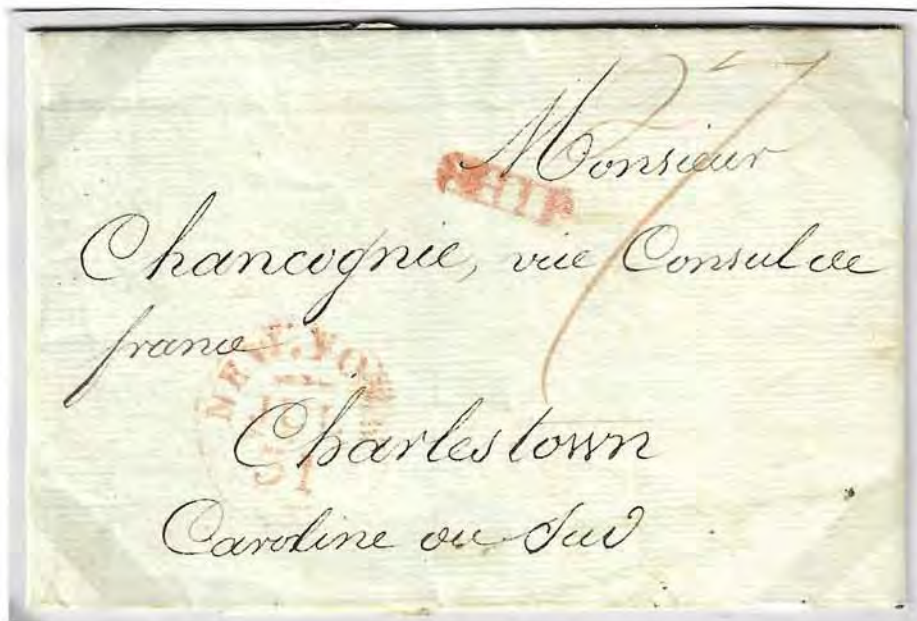 27
Monsieur
SHIP
Chancognie, vice Consul de
france
NEW.YO
Charlestown
Caroline du Sud